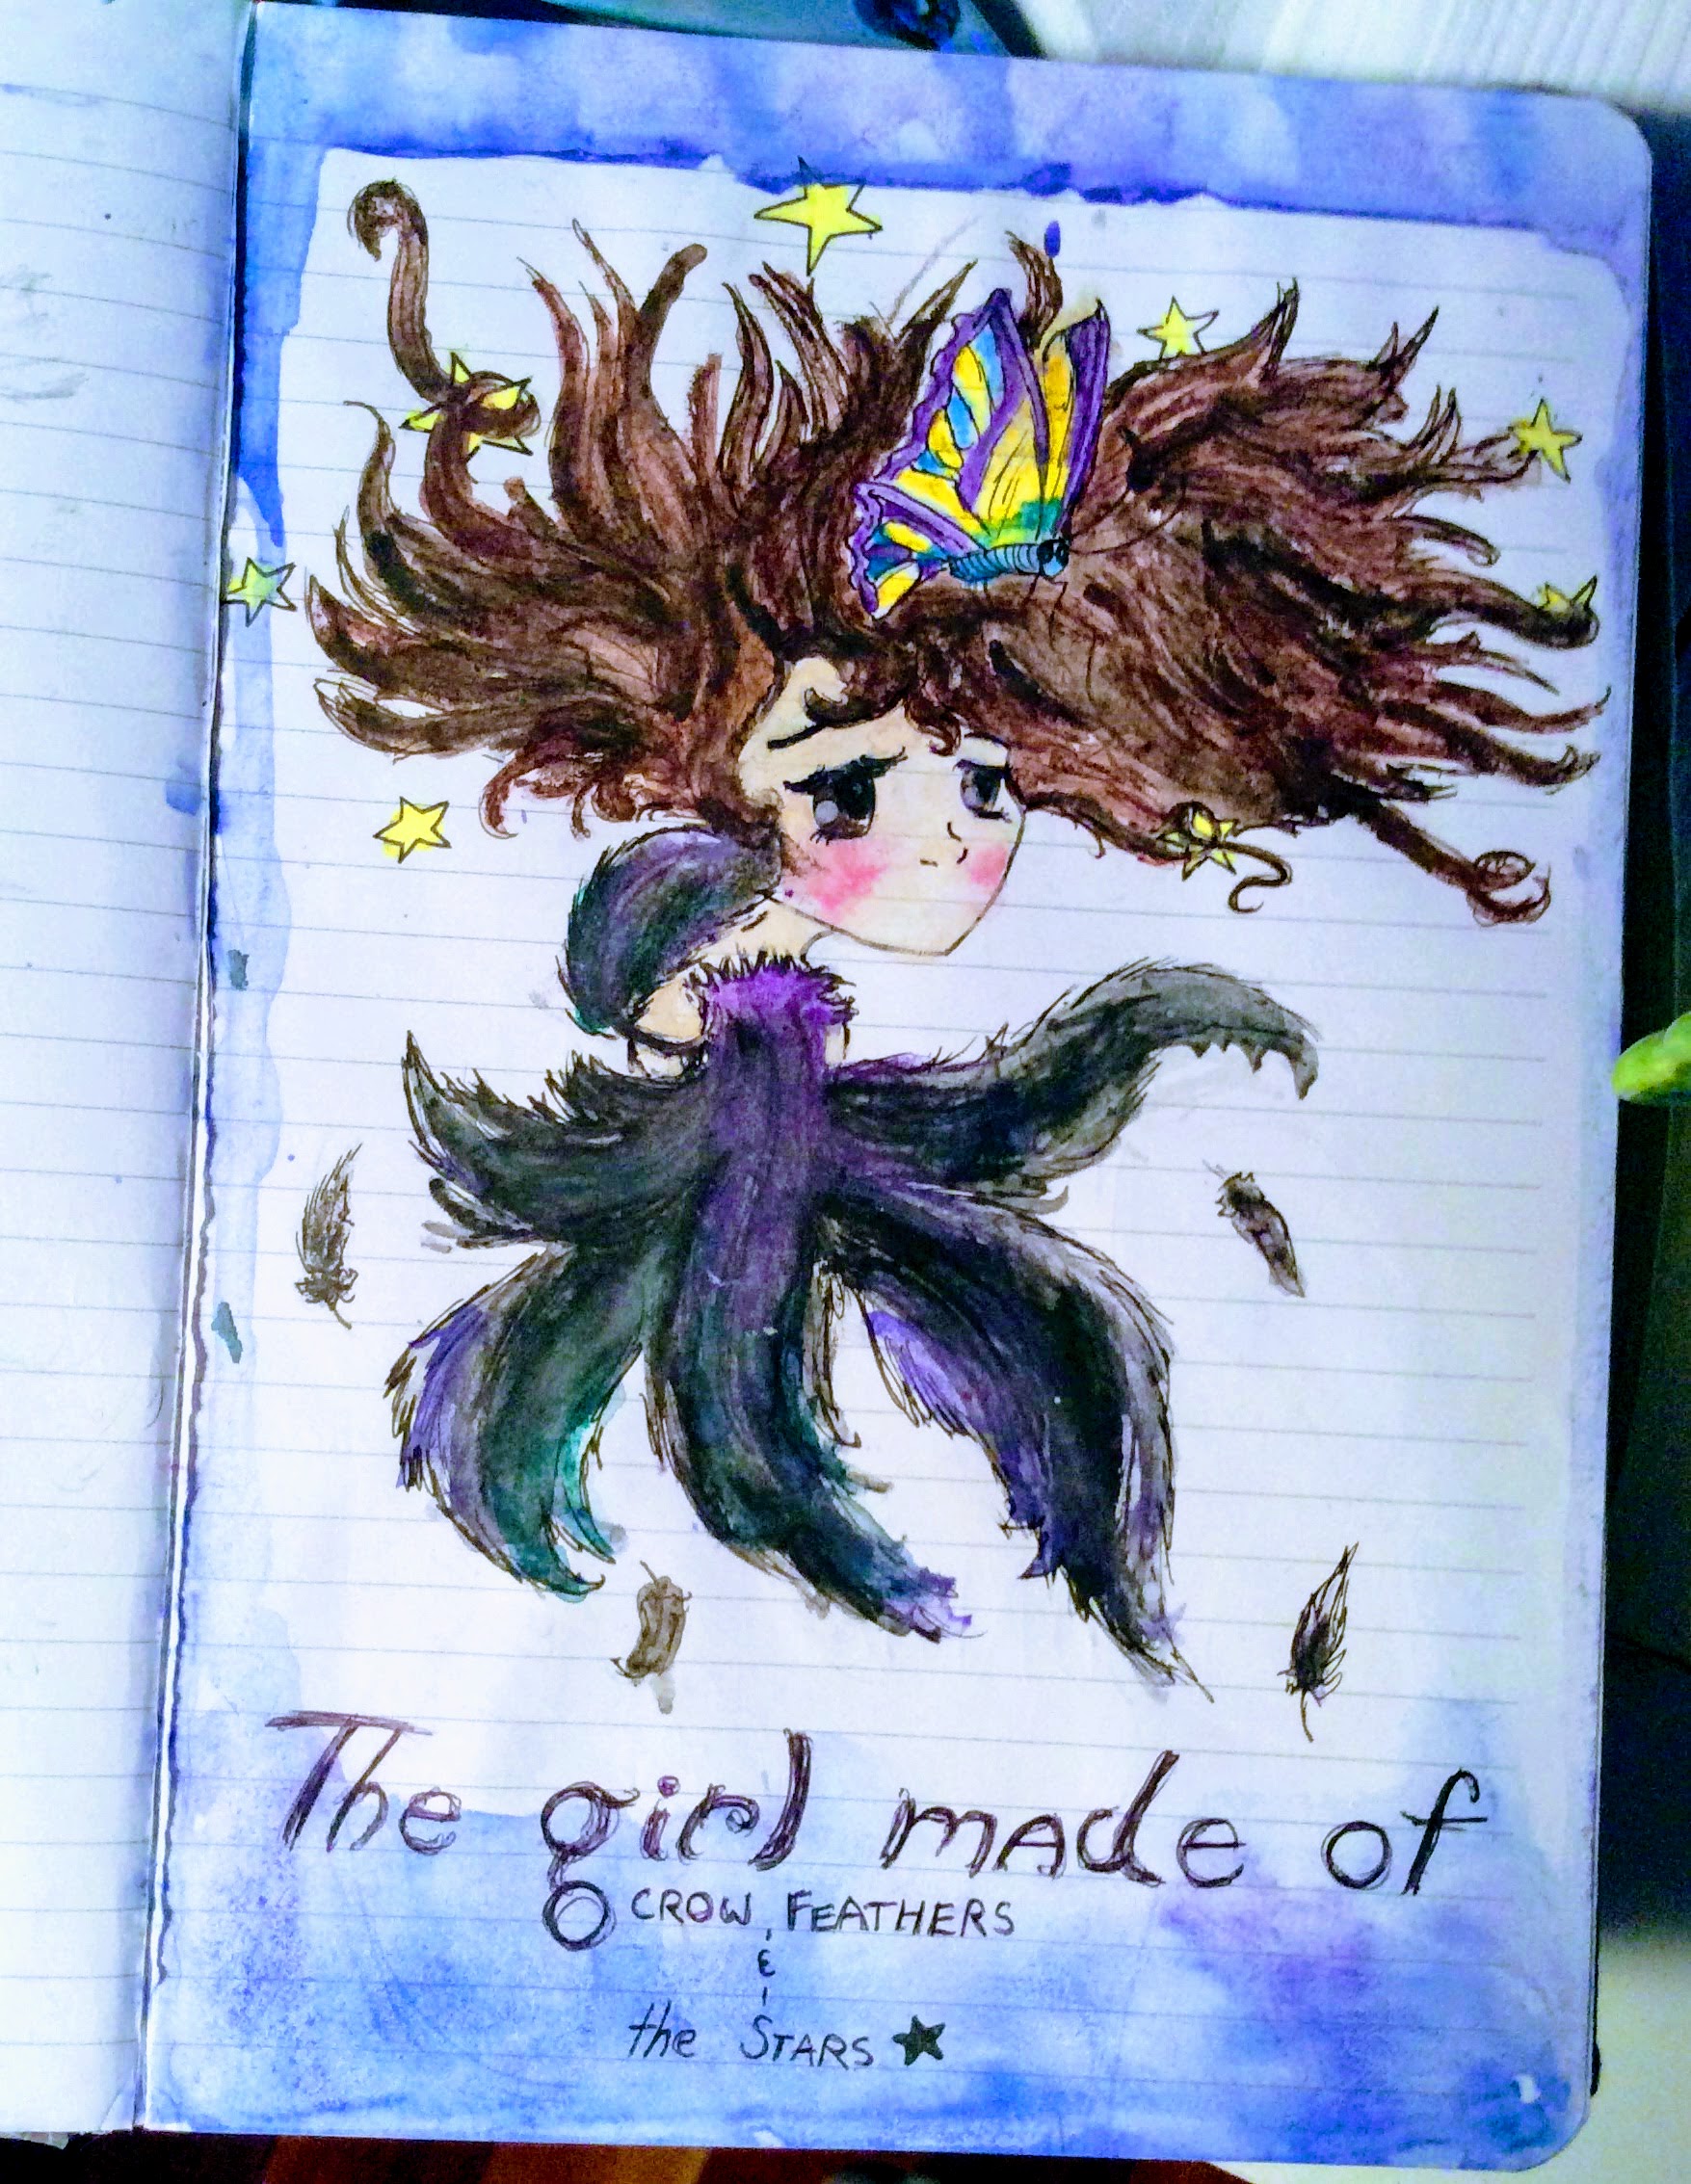 The girl made of
CROW FEATHERS
&
the STARS